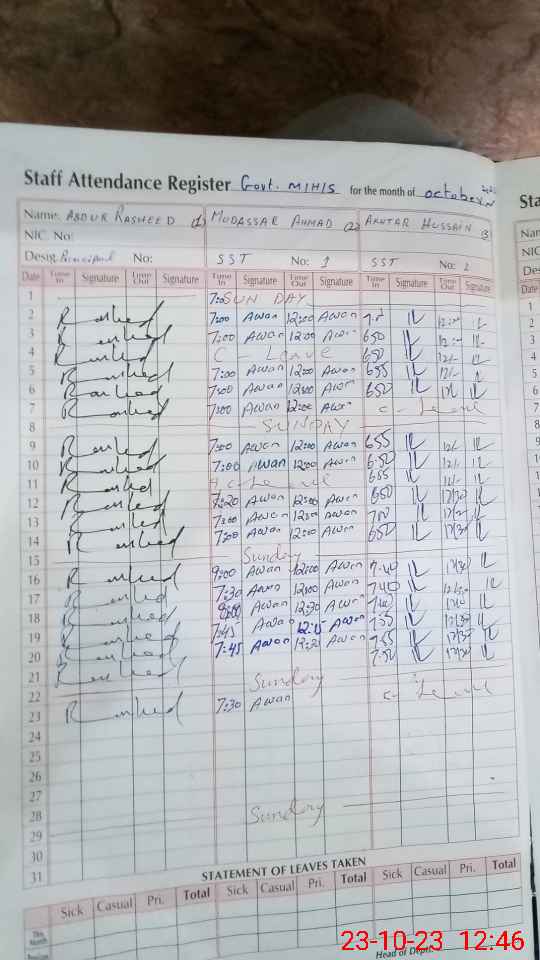 Staff Attendance Register Govt. MIHIS for the month of october
Sta
Name: ABDUR RASHEED (1) MUDASSAR AHMAD (2) AKHTAR HUSSAIN (3)
Nam
NIC. No:
NIC
Desig: Principal No: SST No: 1 SST No: 2
Desi
Date Time In Signature Time Out Signature Time In Signature Time Out Signature Time In Signature Time Out Signature
Date
1 SUN DAY
2 Rasheed 7:00 Awan 12:00 Awan
3 Rasheed 7:00 Awan 12:00 Awan 650
4 Rasheed C-Leave 650
5 Rasheed 7:00 Awan 12:00 Awan 655
6 Rasheed 7:00 Awan 12:00 Awan 650
7 Rasheed 7:00 Awan 12:00 Awan C-Leave
8 SUNDAY
9 Rasheed 7:00 Awan 12:00 Awan 655
10 Rasheed 7:00 Awan 12:00 Awan 6:50
11 Rasheed H.C-Leave 655
12 Rasheed 7:20 Awan 12:00 Awan 650
13 Rasheed 7:00 Awan 12:00 Awan
14 Rasheed 7:00 Awan 12:00 Awan 650
15 Sunday
16 Rasheed 9:00 Awan 12:00 Awan 7:40
17 Rasheed 7:30 Awan 12:00 Awan 740
18 Rasheed Awan 12:30 Awan 740
19 Rasheed 7:45 Awan 12:15 Awan 7:55
20 Rasheed 7:45 Awan 12:30 Awan 7:55
21 Rasheed 7:50
22 Sunday
23 Rasheed 7:30 Awan C-Leave
24
25
26
27
28 Sunday
29
30
31
STATEMENT OF LEAVES TAKEN
Sick Casual Pri. Total Sick Casual Pri. Total Sick Casual Pri. Total
This Month
Previous
Head of Deptt.
23-10-23 12:46